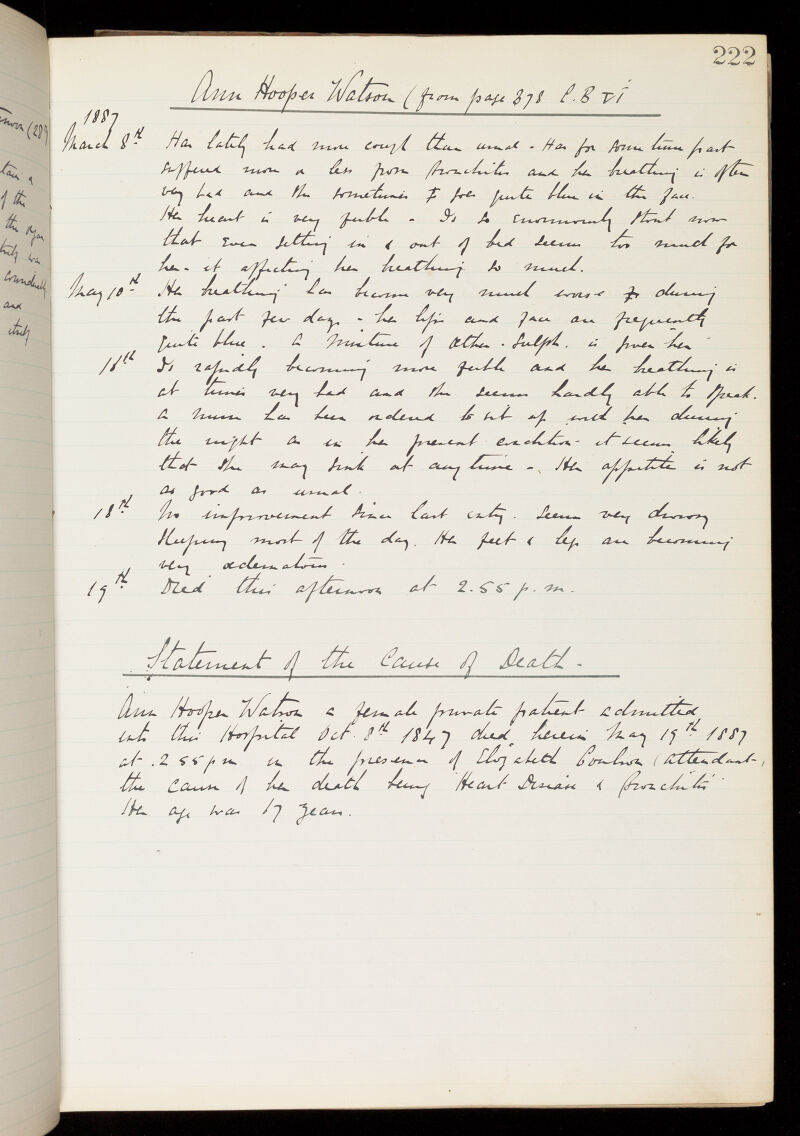 222
Ann Hooper Watson (from page 378 C.B VI
1887
March 8th Has lately had more cough than usual - Has for some time past
suffered more or less from bronchitis and her breathing is often
very bad and she sometimes goes quite blue in the face.
Her heart is very feeble - Is so enormously stout now
that even getting in & out of bed seems too much for
her - it affecting her breathing so much.
May 10th Her breathing has become very much worse during
the past few days - her lips and face are frequently
quite blue. A mixture of Æther. Sulph. is given her
Is rapidly becoming more feeble and her breathing is
at times very bad and she seems hardly able to speak.
A nurse has been ordered to sit up with her during
the night as in her present condition it seems likely
that she may sink at anytime -. Her appetite is not
as good as usual.
18th No improvement since last entry. Seems very drowsy
sleeping most of the day. Her feet & legs are becoming
very œdematous.
19th Died this afternoon at 2.55 p.m.
Statement of the Cause of Death -
Ann Hooper Watson a female private patient admitted
into this Hospital Oct. 8th 1847 died herein May 19th 1887
at .2 55 pm in the presence of Elizabeth Coulson (attendant,
the cause of her death being Heart Disease & Bronchitis
Her age was years.